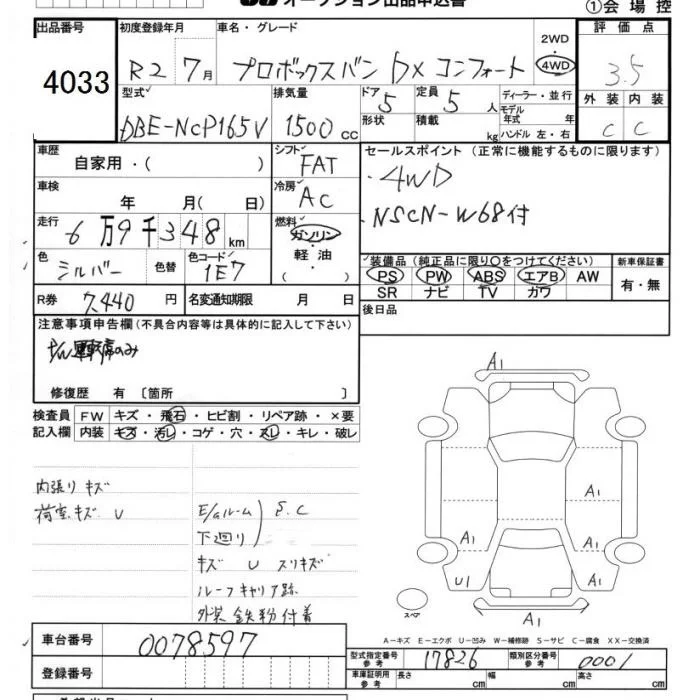 オークション出品申込書 ①会場控
出品番号 初度登録年月 車名・グレード 評価点
4033 R2 7月 プロボックスバン DX コンフォート 2WD 4WD 3.5
型式 排気量 ドア 定員 ディーラー・並行 外装 内装
DBE-NCP165V 1500cc 5 5人 モデル年式 年 C C
形状 積載 kg ハンドル 左・右
車歴 自家用・( ) シフト FAT セールスポイント (正常に機能するものに限ります)
車検 年 月( 日) 冷房 AC ・4WD
・NSCN-W68付
走行 6万9千348km 燃料 ガソリン・軽油・( )
色 シルバー 色替 色コード 1E7 装備品(純正品に限り○をつけてください) 新車保証書
PS PW ABS エアB AW 有・無
SR ナビ TV カワ
R券 7,440円 名変通知期限 月 日 後日品
注意事項申告欄(不具合内容等は具体的に記入して下さい)
P/W運転席のみ
修復歴 有 〔箇所 〕
検査員 FW キズ・飛石・ヒビ割・リペア跡・×要
記入欄 内装 キズ・汚レ・コゲ・穴・スレ・キレ・破レ
内張りキズ
荷室キズ U
E/gルーム S.C
下廻り
キズ U スリキズ
ルーフキャリア跡
外装鉄粉付着
A1
A1
A1
A1 A1
U1 A1
A1
スペア
A-キズ E-エクボ U-凹み W-補修跡 S-サビ C-腐食 XX-交換済
車台番号 0078597
型式指定番号 参考 17826 類別区分番号 参考 0001
登録番号 車庫証明用 参考 長さ cm 幅 cm 高さ cm